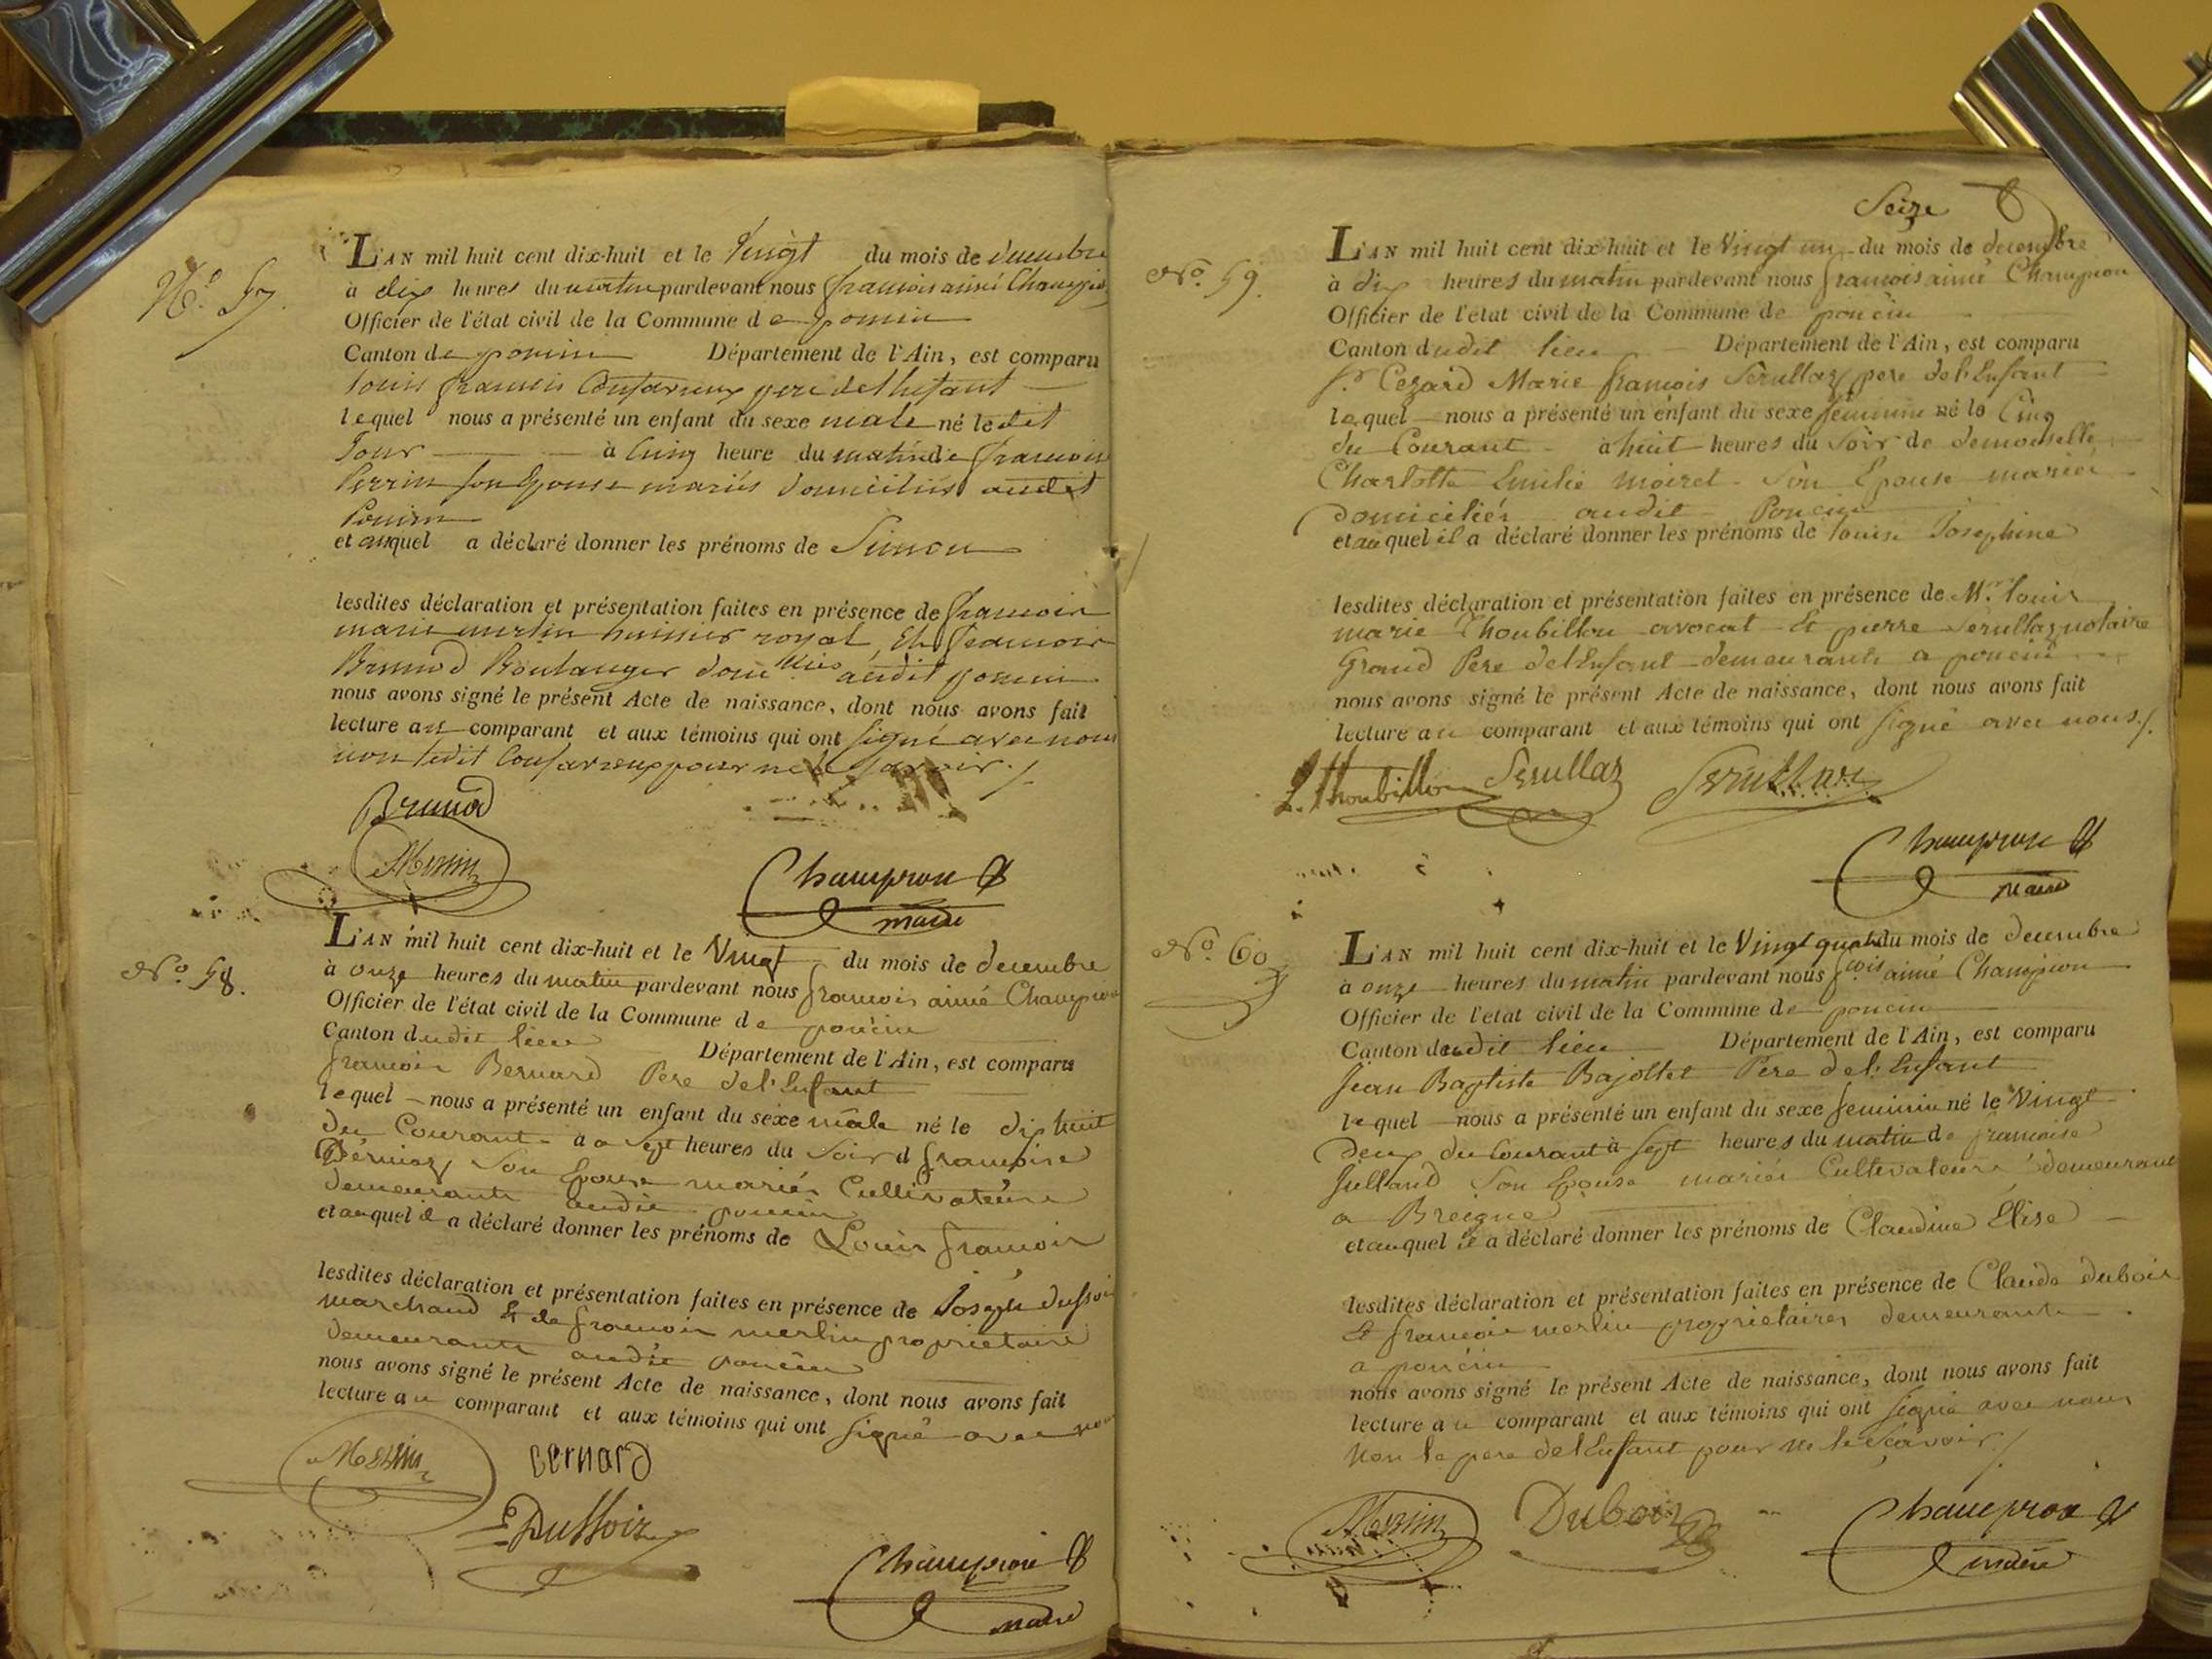 N.º 57.
L'AN mil huit cent dix-huit et le Vingt du mois de decembre
à dix heures du matin pardevant nous francois aimé Champion
Officier de l'état civil de la Commune de poncin
Canton de poncin Département de l'Ain, est comparu
louis francois pere de l'enfant
lequel nous a présenté un enfant du sexe male né le dit
Jour à Cinq heure du matin de francoise
Perrin son Epouse mariés domiciliés audit
Poncin
et auquel a déclaré donner les prénoms de Simon
lesdites déclaration et présentation faites en présence de francois
marie merlin huissier royal, Et francois
Brunod Boulanger domiliés audit poncin
nous avons signé le présent Acte de naissance, dont nous avons fait
lecture au comparant et aux témoins qui ont signé avec nous
non ledit pour ne le savoir ./
Brunod
Merlin
Champion
maire
N.º 58.
L'AN mil huit cent dix-huit et le Vingt du mois de decembre
à onze heures du matin pardevant nous francois aimé Champion
Officier de l'état civil de la Commune de poncin
Canton dudit lieu Département de l'Ain, est comparu
francois Bernard Pere de l'Enfant
lequel nous a présenté un enfant du sexe male né le dix huit
du Courant à sept heures du Soir d francoise
Son Epouse mariés Cultivateurs
demeurants audit poncin
et auquel il a déclaré donner les prénoms de Louis francois
lesdites déclaration et présentation faites en présence de Joseph dussoix
marchand Et de francois merlin proprietaire
demeurants audit poncin
nous avons signé le présent Acte de naissance, dont nous avons fait
lecture au comparant et aux témoins qui ont signé avec nous
Merlin
Bernard
Dussoix
Champion
maire
Seize
N.º 59.
L'AN mil huit cent dix-huit et le Vingt un du mois de decembre
à dix heures du matin pardevant nous francois aimé Champion
Officier de l'état civil de la Commune de poncin
Canton dudit lieu Département de l'Ain, est comparu
S.r Cezard Marie francois Serullaz pere de l'Enfant
lequel nous a présenté un enfant du sexe feminin né le Cinq
du Courant à huit heures du Soir de demoiselle
Charlotte Emilie moiret Son Epouse mariés
domiciliés audit Poncin
et auquel il a déclaré donner les prénoms de louise Josephine
lesdites déclaration et présentation faites en présence de M.r louis
marie Thoubillon avocat Et pierre Serullaz notaire
Grand Pere de l'Enfant demeurants a poncin
nous avons signé le présent Acte de naissance, dont nous avons fait
lecture au comparant et aux témoins qui ont signé avec nous ./
L. Thoubillon Serullaz Serullaz
Champion
maire
N.º 60
L'AN mil huit cent dix-huit et le Vingt quatre du mois de decembre
à onze heures du matin pardevant nous fcois aimé Champion
Officier de l'état civil de la Commune de poncin
Canton dudit lieu Département de l'Ain, est comparu
Jean Baptiste Bajollet Pere de l'Enfant
lequel nous a présenté un enfant du sexe feminin né le Vingt
Deux du Courant à sept heures du matin de francoise
Julland Son Epouse mariés Cultivateurs demeurant
a Breigne
et auquel il a déclaré donner les prénoms de Claudine Élise
lesdites déclaration et présentation faites en présence de Claude dubois
Et francois merlin proprietaires demeurants
a poncin
nous avons signé le présent Acte de naissance, dont nous avons fait
lecture au comparant et aux témoins qui ont signé avec nous
Non le pere de l'Enfant pour ne le Scavoir ./
Merlin
Dubois
Champion
maire